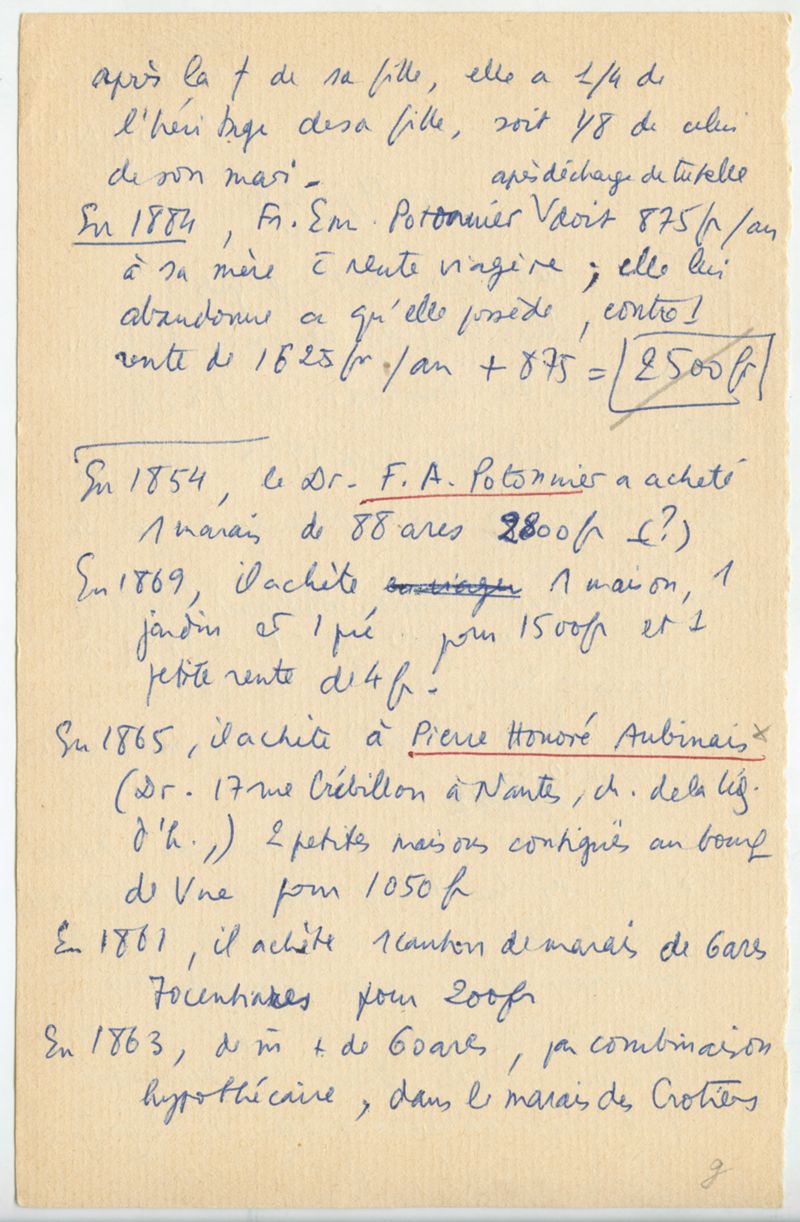 après la † de sa fille, elle a 1/4 de
l'héritage de sa fille, soit 1/8 de celui
de son mari -
après décharge de tutelle
En 1884, Fr. Em. Potonnier V doit 875 fr/an
à sa mère c̄ rente viagère ; elle lui
abandonne ce qu'elle possède, contre 1
rente de 1625 fr/an + 875 = 2500 fr
En 1854, le Dr. F. A. Potonnier a acheté
1 marais de 88 ares 2800 fr (?)
En 1869, il achète 1 maison, 1
jardin et 1 pré pour 1500 fr et 1
petite rente de 4 fr.
En 1865, il achète à Pierre Honoré Aubinais x
(Dr. 17 rue Crébillon à Nantes, ch. de la lég.
d'h.,) 2 petites maisons contiguës au bourg
de Vue pour 1050 fr
En 1861, il achète 1 canton de marais de 6 ares
70 centiares pour 200 fr
En 1863, de m̄ + de 60 ares, par combinaison
hypothécaire, dans le marais des Crotiers
g